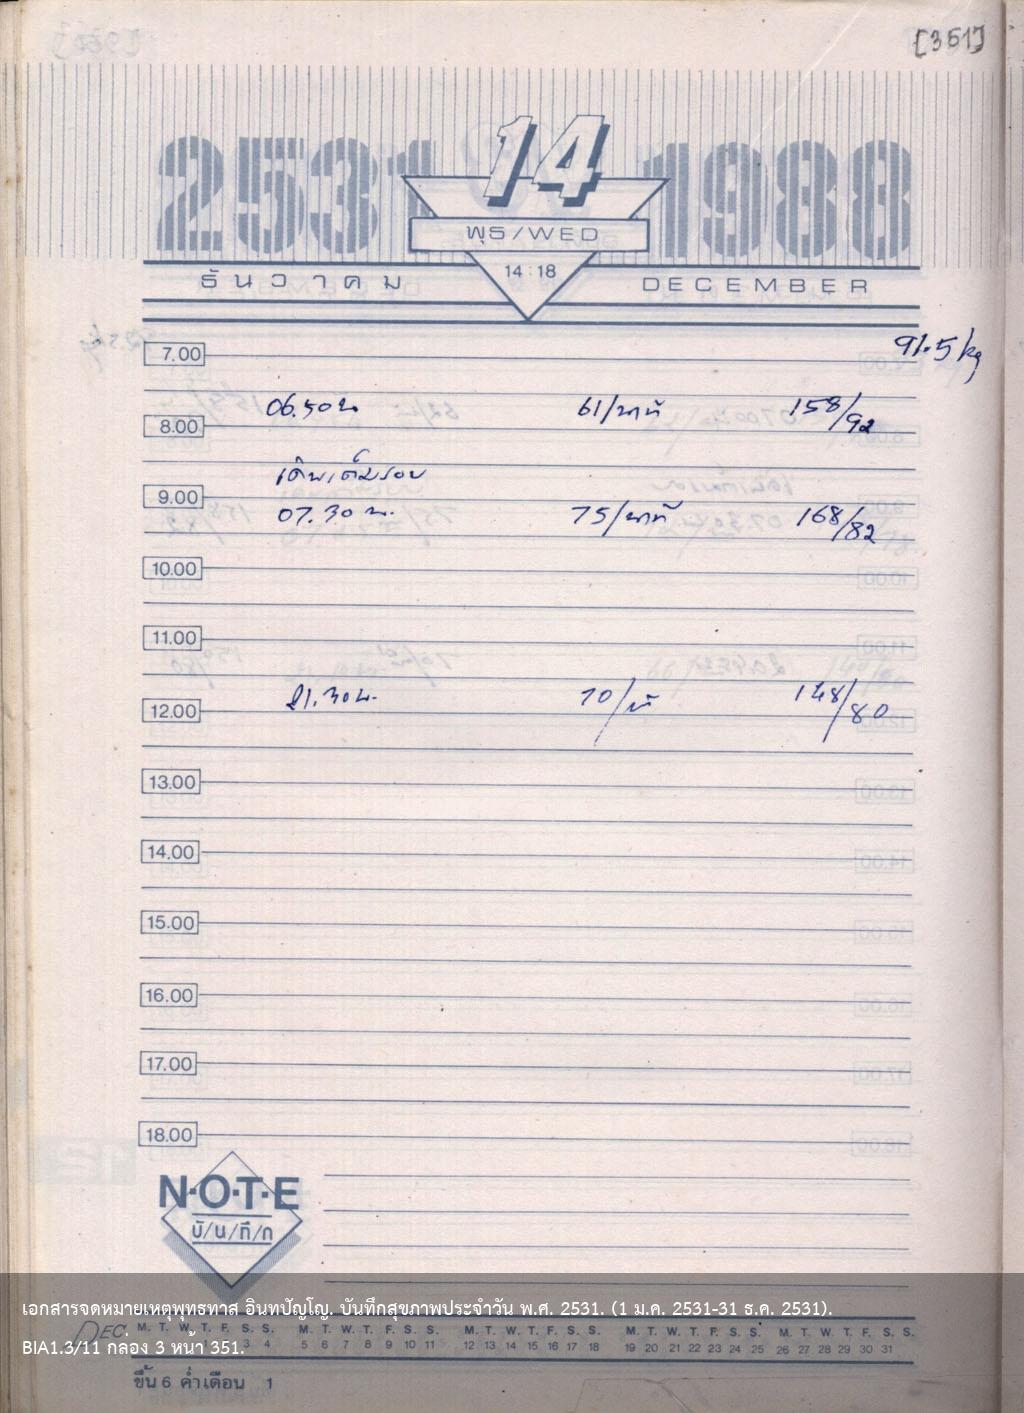 [351]
2531 14 1988
พุธ/WED
14 : 18
ธันวาคม DECEMBER
91.5 kg
7.00
06.50 น 61/นาที 158/92
8.00
เดินเต็มรอบ
9.00
07.30 น. 75/นาที 168/82
10.00
11.00
21.30 น. 70/นที 148/80
12.00
13.00
14.00
15.00
16.00
17.00
18.00
N·O·T·E
บั/น/ทึ/ก
เอกสารจดหมายเหตุพุทธทาส อินทปัญโญ. บันทึกสุขภาพประจำวัน พ.ศ. 2531. (1 ม.ค. 2531-31 ธ.ค. 2531).
DEC. M. T. W. T. F. S. S. M. T. W. T. F. S. S. M. T. W. T. F. S. S. M. T. W. T. F. S. S. M. T. W. T. F. S. S.
3 4 5 6 7 8 9 10 11 12 13 14 15 16 17 18 19 20 21 22 23 24 25 26 27 28 29 30 31
BIA1.3/11 กล่อง 3 หน้า 351.
ขึ้น 6 ค่ำ เดือน 1